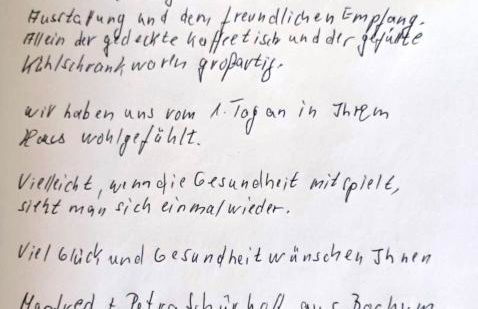 Ausstattung und dem freundlichen Empfang.
Allein der gedeckte Kaffeetisch und der gefüllte
Kühlschrank waren großartig.
wir haben uns vom 1. Tag an in Ihrem
Haus wohlgefühlt.
Vielleicht, wenn die Gesundheit mitspielt,
sieht man sich einmal wieder.
Viel Glück und Gesundheit wünschen Ihnen
Manfred + Petra aus Bochum